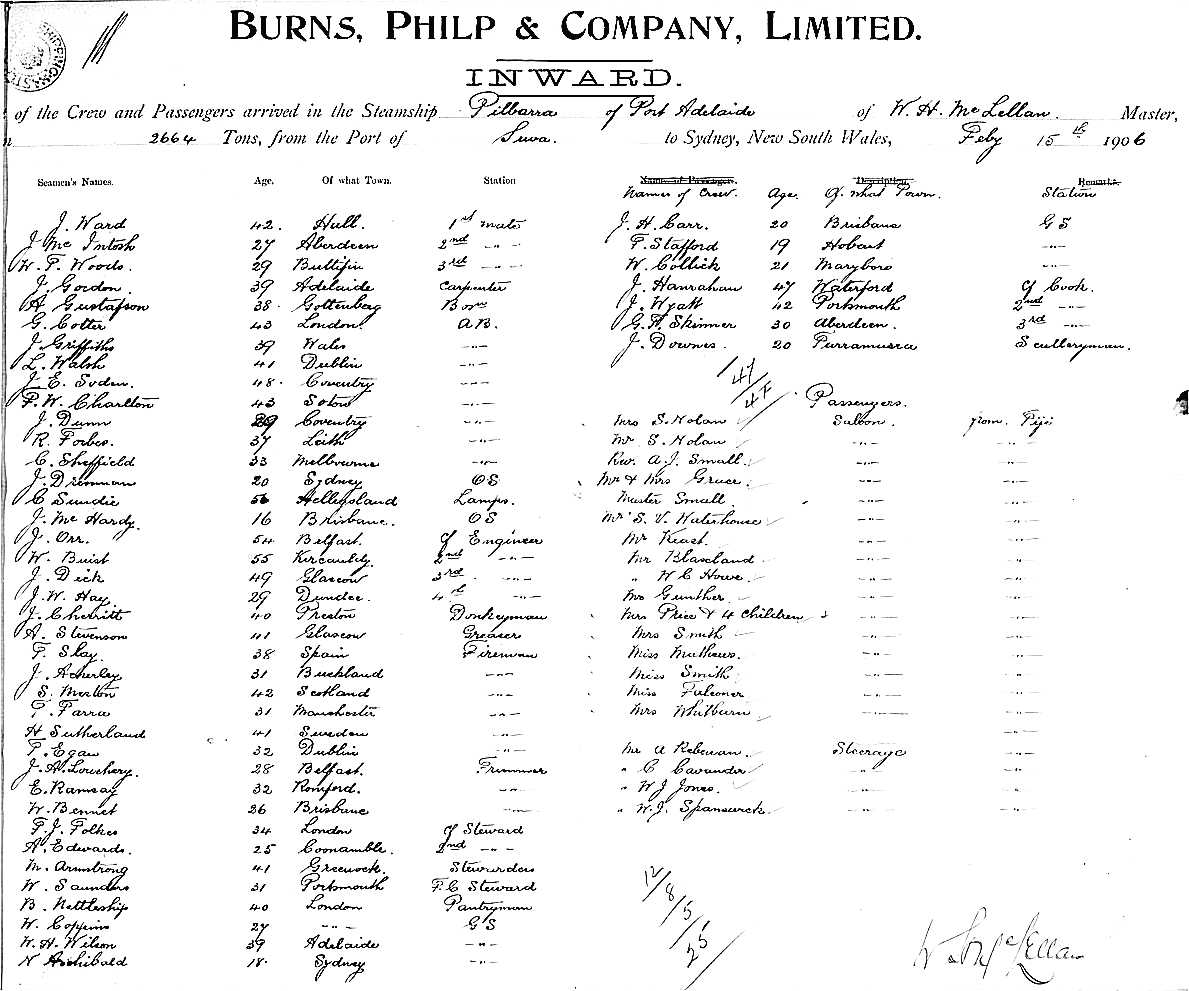 BURNS, PHILP & COMPANY, LIMITED.
INWARD.
of the Crew and Passengers arrived in the Steamship Pilbarra of Port Adelaide of W. H. McLellan. Master,
2664 Tons, from the Port of Suva. to Sydney, New South Wales, Feby 15th 1906
Seamen's Names. Age. Of what Town. Station Names of Passengers. Description. Remarks.
Names of Crew. Age. Of what Town. Station
J. Ward 42. Hull. 1st mate J. H. Carr. 20 Brisbane GS
J Mc Intosh 27 Aberdeen 2nd -"- F. Stafford 19 Hobart -"-
W. F. Woods. 29 3rd -"- W. Collick 21 Maryboro -"-
J. Gordon. 39 Adelaide Carpenter J. Hanrahan 47 Waterford Cf Cook.
A Gustafson 38. Gottenberg Bosn J. Wyatt 42 Portsmouth 2nd -"-
G. Cotter 43 London. A.B. G. H. Skinner 30 Aberdeen. 3rd -"-
J. Griffiths 39 Wales -"- J. Downes. 20 Sculleryman.
L. Walsh 41 Dublin -"-
J. E. Soden. 48. Coventry -"- 47/47
F. W. Charlton 43 Soton -"- Passengers.
J. Dunn 29 Coventry -"- Mrs S. Nolan Saloon. from Fiji
R. Forbes. 37 Leith -"- Mr S. Nolan -"- -"-
C. Sheffield 33 Melbourne -"- Rev. A. J. Small. -"- -"-
J. Drennan 20 Sydney OS Mr & Mrs Gruse. -"- -"-
C Sundie 56 Hellegsland Lamps. Master Small -"- -"-
J. Mc Hardy. 16 Brisbane. OS Mr S. V. Waterhouse -"- -"-
J. Orr. 54 Belfast. Cf Engineer Mr Keast. -"- -"-
W. Buist 55 Kircauldy 2nd -"- Mr Blaxland -"- -"-
J. Dick 49 Glascow 3rd. -"- " W C Howe. -"- -"-
J. W. Hay 29 Dundee. 4th -"- Mrs Gunther. -"- -"-
J. Cherritt 40 Preston Donkeyman Mrs Price & 4 Children -"- -"-
A. Stevenson 41 Glascow Greaser Mrs Smith -"- -"-
F. Slay. 38 Spain Fireman Miss Mathews. -"- -"-
J. Acherley 31 Buckland -"- Miss Smith -"- -"-
S. Morton 42 Scotland -"- Miss Falconer -"- -"-
P. Farra 31 Manchester -"- Mrs Whitburn -"- -"-
H Sutherland 41 Sweden -"- -"-
P. Egan 32 Dublin -"- Mr A Rebeman. Steerage -"-
J. A. Loughery. 28 Belfast. Trimmer " C Cavander -"- -"-
E. Ramsay 32 Romford. -"- " W J Jones. -"- -"-
W. Bennet 26 Brisbane -"- " W. J. Spanswick. -"- -"-
F. J. Folkes 34 London Cf Steward
A. Edwards. 25 Coonamble. 2nd -"-
M. Armstrong 41 Greenock. Stewardess
W. Saunders 31 Portsmouth F. C Steward 12/8/5/25
B. Nettleship 40 London Pantryman
W. Coppins 27 -"- GS
W. H. Wilson 39 Adelaide -"-
N Archibald 18. Sydney -"-
W H McLellan